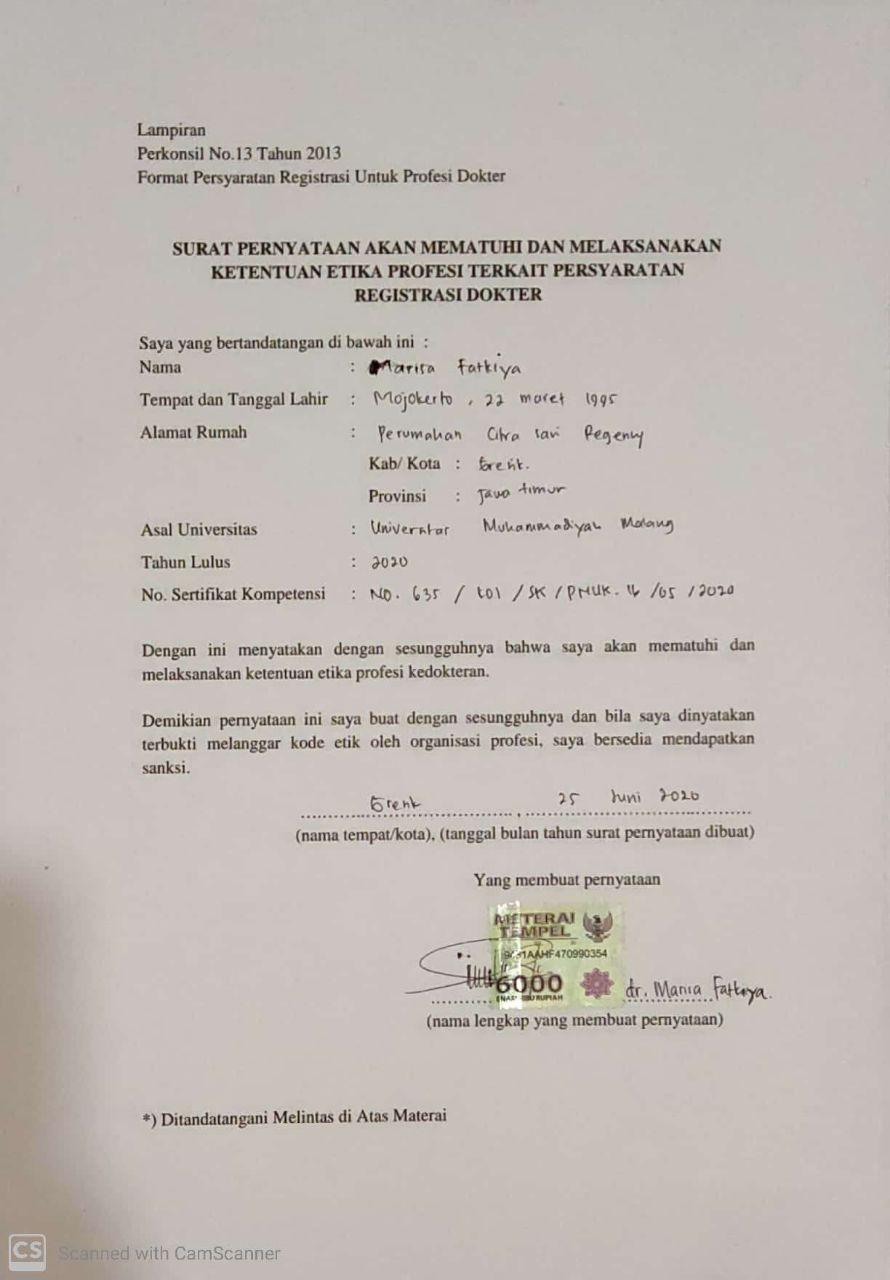 Lampiran
Perkonsil No.13 Tahun 2013
Format Persyaratan Registrasi Untuk Profesi Dokter
SURAT PERNYATAAN AKAN MEMATUHI DAN MELAKSANAKAN
KETENTUAN ETIKA PROFESI TERKAIT PERSYARATAN
REGISTRASI DOKTER
Saya yang bertandatangan di bawah ini :
Nama : Marisa Fatkiya
Tempat dan Tanggal Lahir : Mojokerto , 22 maret 1995
Alamat Rumah : Perumahan Citra sari Regency
Kab/ Kota :
Provinsi : Jawa timur
Asal Universitas : Universitas Muhammadiyah Malang
Tahun Lulus : 2020
No. Sertifikat Kompetensi : NO. 635 / / SK / / 05 / 2020
Dengan ini menyatakan dengan sesungguhnya bahwa saya akan mematuhi dan
melaksanakan ketentuan etika profesi kedokteran.
Demikian pernyataan ini saya buat dengan sesungguhnya dan bila saya dinyatakan
terbukti melanggar kode etik oleh organisasi profesi, saya bersedia mendapatkan
sanksi.
, 25 Juni 2020
(nama tempat/kota), (tanggal bulan tahun surat pernyataan dibuat)
Yang membuat pernyataan
METERAI
TEMPEL
470990354
6000
dr. Marisa Fatkiya.
(nama lengkap yang membuat pernyataan)
*) Ditandatangani Melintas di Atas Materai
CS Scanned with CamScanner